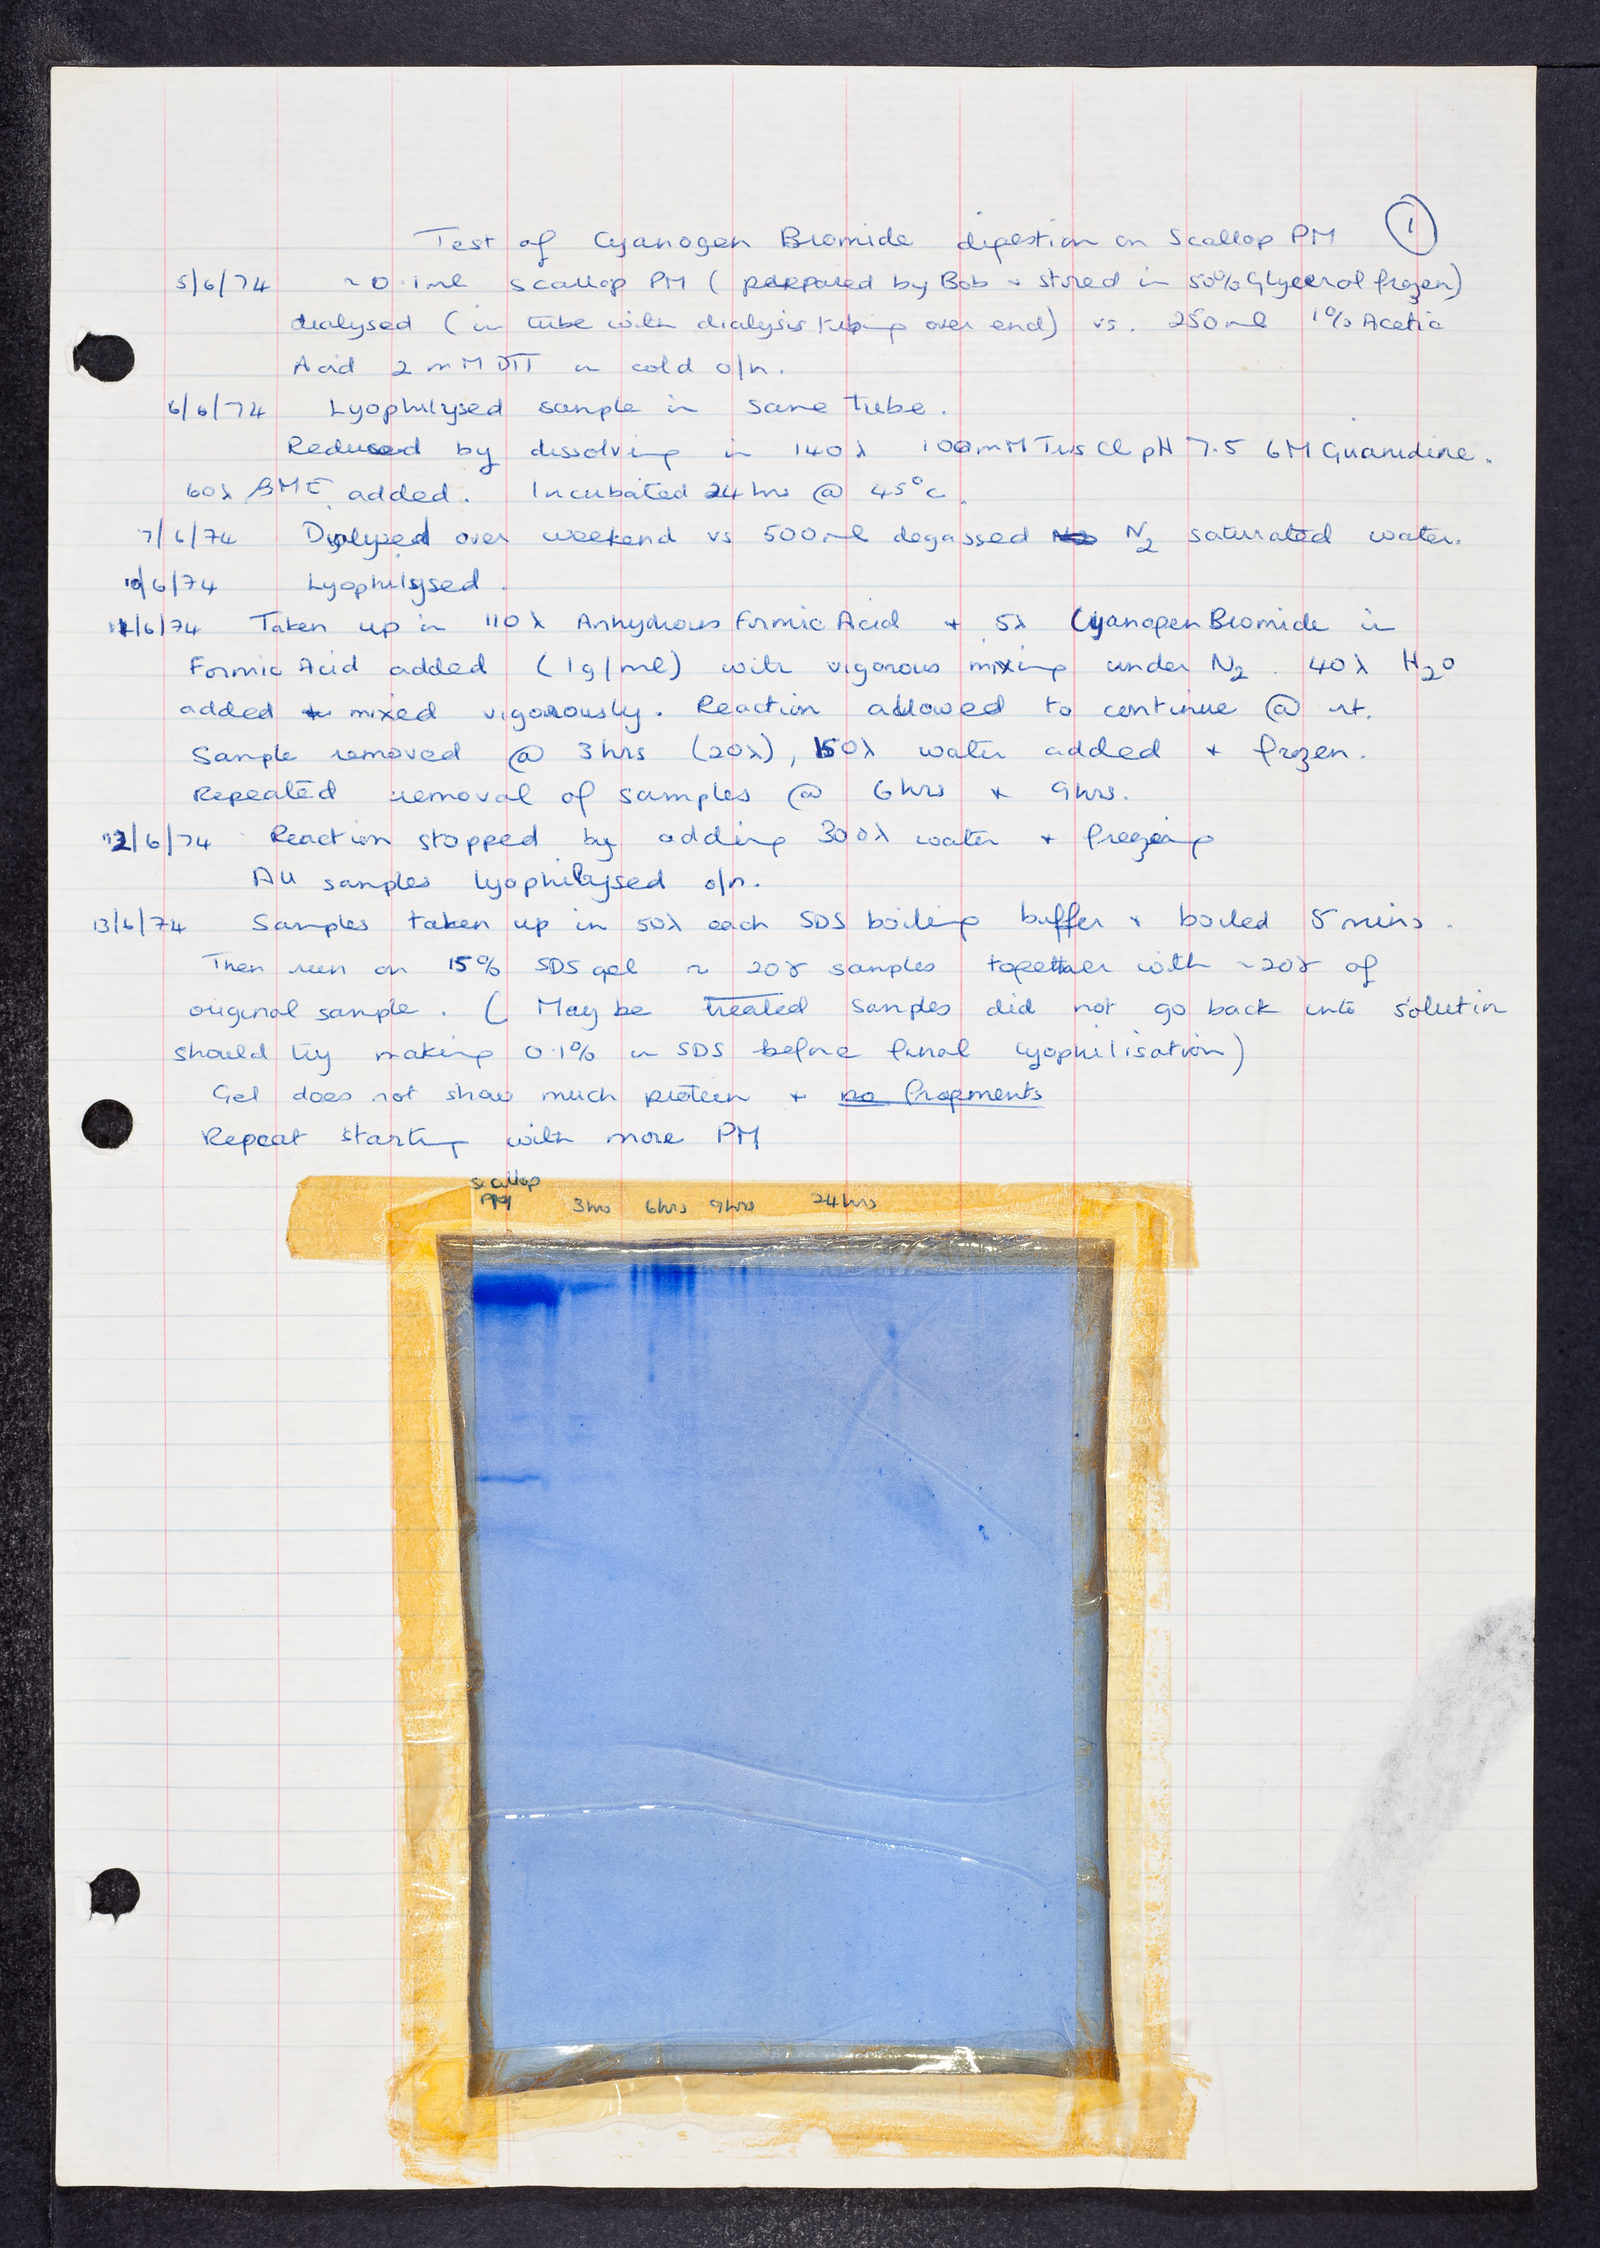 Test of Cyanogen Bromide digestion on Scallop PM ①
5/6/74 ~0.1ml scallop PM (prepared by Bob + stored in 50% Glycerol frozen)
dialysed (in tube with dialysis tubing over end) vs. 250ml 1% Acetic
Acid 2mM DTT in cold o/n.
6/6/74 Lyophilysed sample in same tube.
Reduced by dissolving in 140λ 100mM Tris Cl pH 7.5 6M Guanidine.
60λ BME added. Incubated 24hrs @ 45°C.
7/6/74 Dialysed over weekend vs 500ml degassed N2 saturated water.
10/6/74 Lyophilysed.
11/6/74 Taken up in 110λ Anhydrous Formic Acid + 5λ Cyanogen Bromide in
Formic Acid added (1g/ml) with vigorous mixing under N2. 40λ H2O
added + mixed vigorously. Reaction allowed to continue @ rt.
Sample removed @ 3hrs (20λ), 150λ water added + frozen.
Repeated removal of samples @ 6hrs + 9hrs.
12/6/74 Reaction stopped by adding 300λ water + freezing
All samples lyophilysed o/n.
13/6/74 Samples taken up in 50λ each SDS boiling buffer + boiled 5mins.
Then run on 15% SDS gel ~ 20γ samples together with ~20γ of
original sample. (May be treated samples did not go back into solutin
should try making 0.1% in SDS before final lyophilisation)
Gel does not show much protein + no fragments
Repeat starting with more PM
Scallop
PM 3hrs 6hrs 9hrs 24hrs